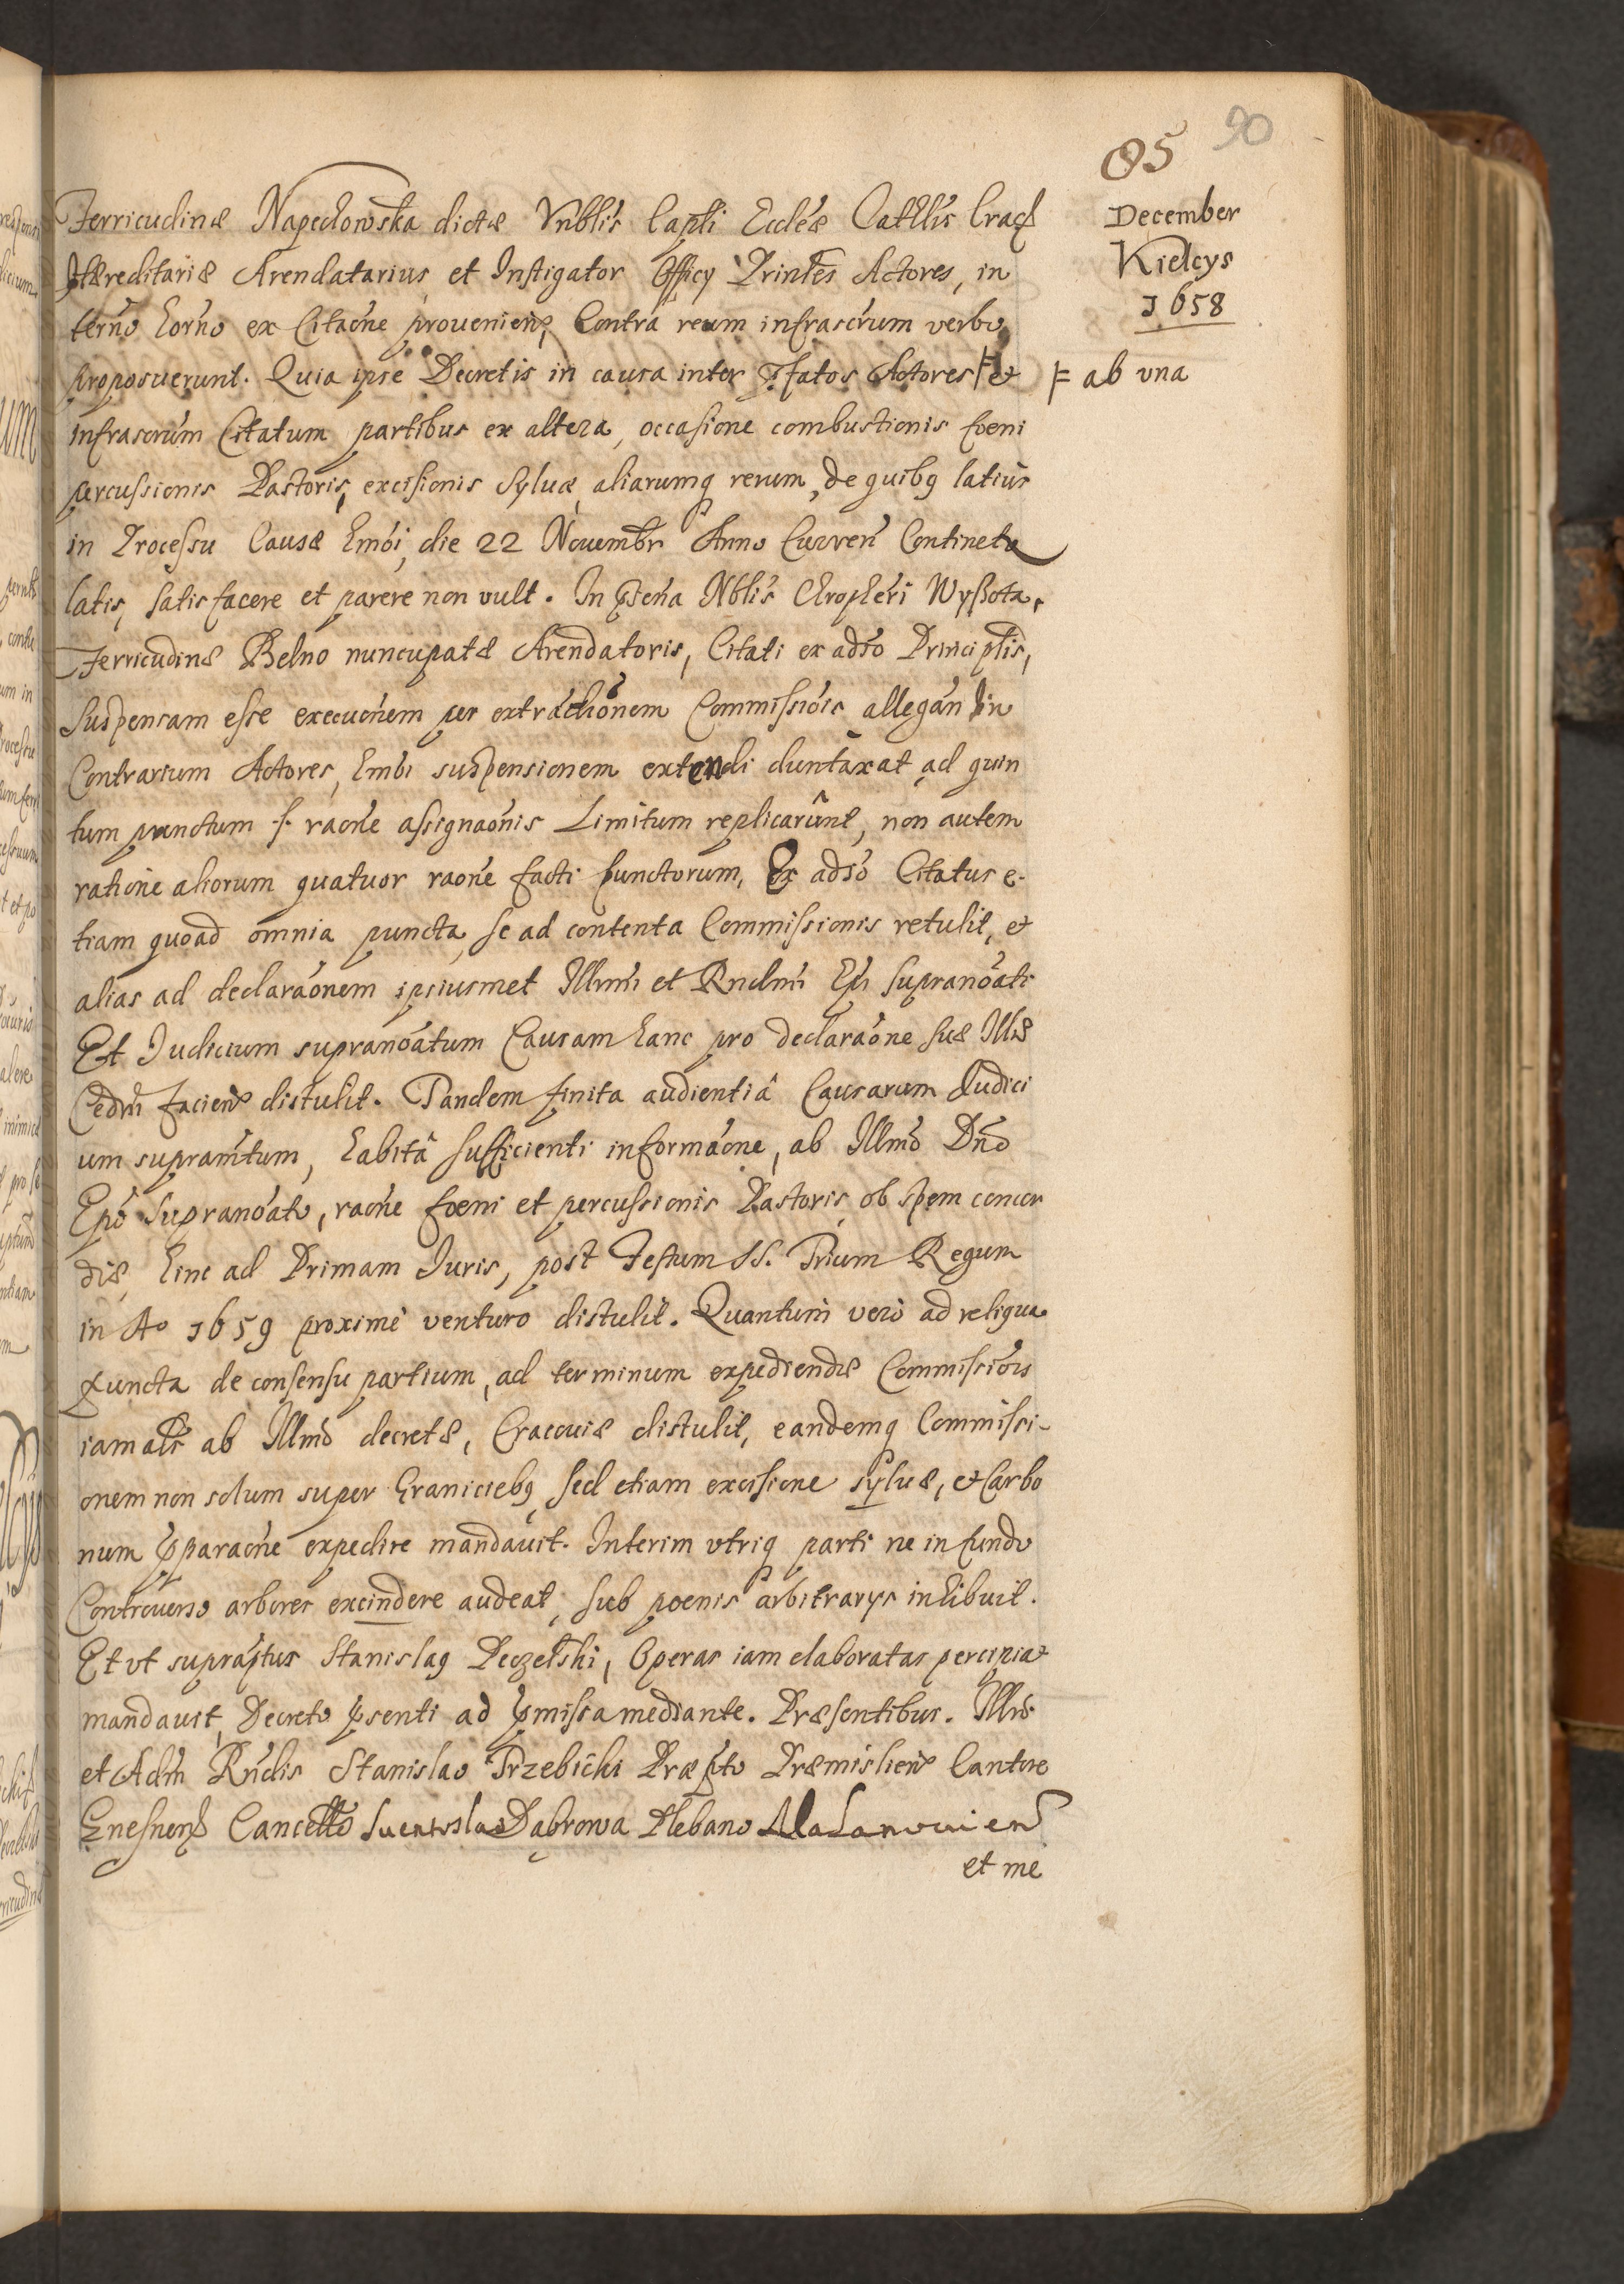 85 90
December
Kielcys
1658
Ferricudinæ Napechowska dictæ Vnblis Capli Eccleæ Cathlis Crac
Hæreditariæ Arendatarius et Instigator Officy Printes Actores, in
terno horno ex Citaone proueniens, Contra reum infrascrum verbo
proposuerunt. Quia ipse Decretis in causa inter Pfatos Actores et
ab vna
infrascrum Citatum partibus ex altera, occasione combustionis foeni
percussionis Pastoris, excisionis Syluæ, aliarumq rerum, de quibq latius
in Processu Causæ hmoi, die 22 Novembr Anno Curren Continetur
latis, satisfacere et parere non vult. In pñtia Nblis Chropheri Wyßota,
Ferricudinæ Belno nuncupatæ Arendatoris, Citati ex adso Principlis,
suspensam esse execuonem per extractionem Commissiois allegan in
Contrarium Actores, hmoi suspensionem extendi duntaxat ad quin
tum punctum raone assignaonis Limitum replicarunt, non autem
ratione aliorum quatuor raone facti punctorum, Ex adso Citatus e-
tiam quoad omnia puncta, se ad contenta Commissionis retulit, et
alias ad declaraonem ipsiusmet Illmi et Rndmi Epi supranoati
Et Judicium supranoatum Causam hanc pro declaraone suæ Illmæ
Cedni faciens distulit. Tandem finita audientiâ Causarum Judici
um supramtum, habitâ sufficienti informaone, ab Illmo Dno
Epo supranoato, raone foeni et percussionis Pastoris, ob spem concor
diæ, hinc ad Primam Juris, post Festum SS. Trium Regum
in Ao 1659 proximè venturo distulit. Quantum verò ad reliqua
puncta de consensu partium, ad terminum expediendæ Commissiois
iam als ab Illmo decretæ, Cracouiæ distulit, eandemq Commissi-
onem non solum super Graniciebq, sed etiam excisione syluæ, et Carbo
num pparaone expedire mandauit. Interim vtriq parti ne in fundo
Controuerso arbores excindere audeat, sub poenis arbitrarys inhibuit.
Et vt suprasptus Stanislaq Peczelski, Operas iam elaboratas percipiat
mandauit, Decreto psenti ad pmissa mediante. Præsentibus. Illri
et Adm Rndis Stanislao Trzebicki Præpto Præmisliens Cantore
Gnesnens Cancello Dąbrowa Plebano
et me